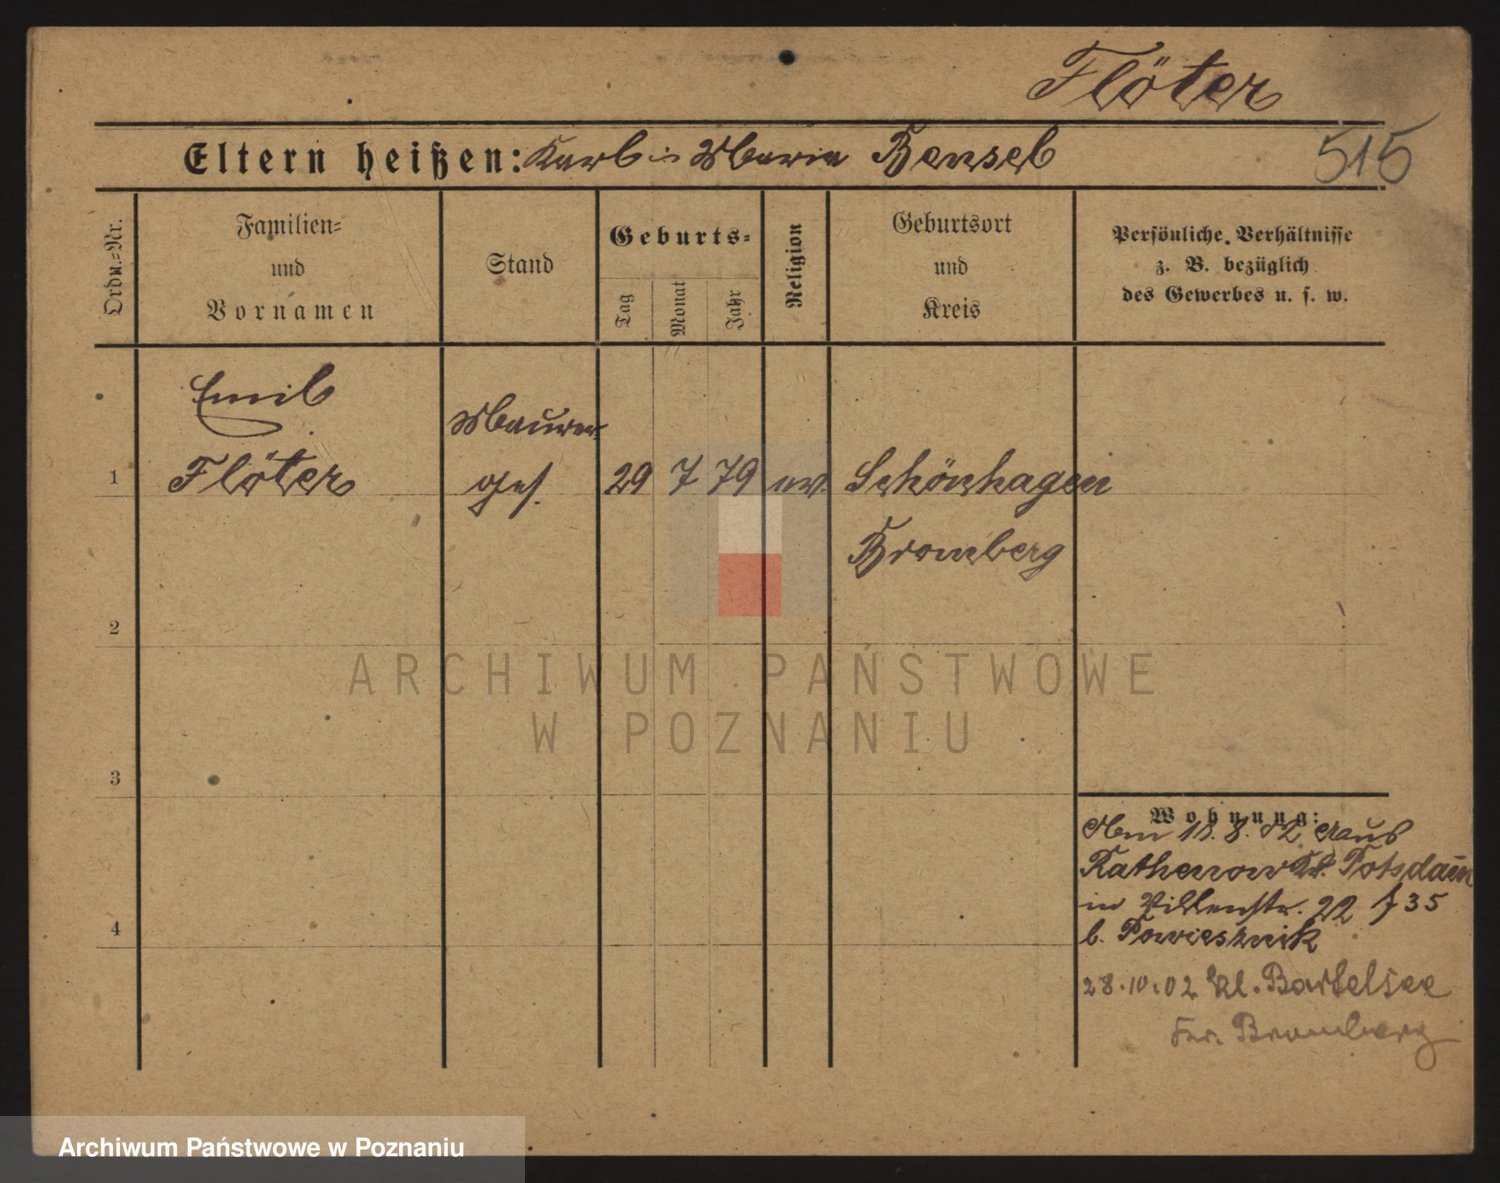 Flöter
515
Eltern heißen: Karl u Maria Bensel
Ordn.-Nr.
Familien-
und
Vornamen
Stand
Geburts-
Tag
Monat
Jahr
Religion
Geburtsort
und
Kreis
Persönliche Verhältnisse
z. B. bezüglich
des Gewerbes u. s. w.
1
Emil
Flöter
Maurer
ges.
29 7 79 ev.
Schönhagen
Bromberg
2
3
4
Wohnung:
Am 11. 8. 02 aus
Rathenow Kr. Potsdam
in Villenstr. 22 35
b. Powiesznik
28.10.02 kl. Bartelsee
Kr. Bromberg
ARCHIWUM PAŃSTWOWE
W POZNANIU
Archiwum Państwowe w Poznaniu